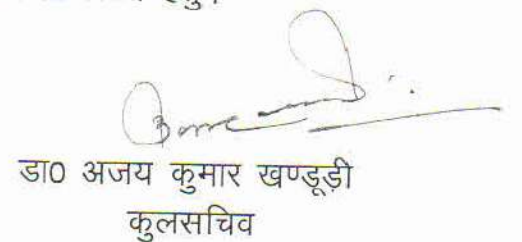 डा0 अजय कुमार खण्डूड़ी
कुलसचिव